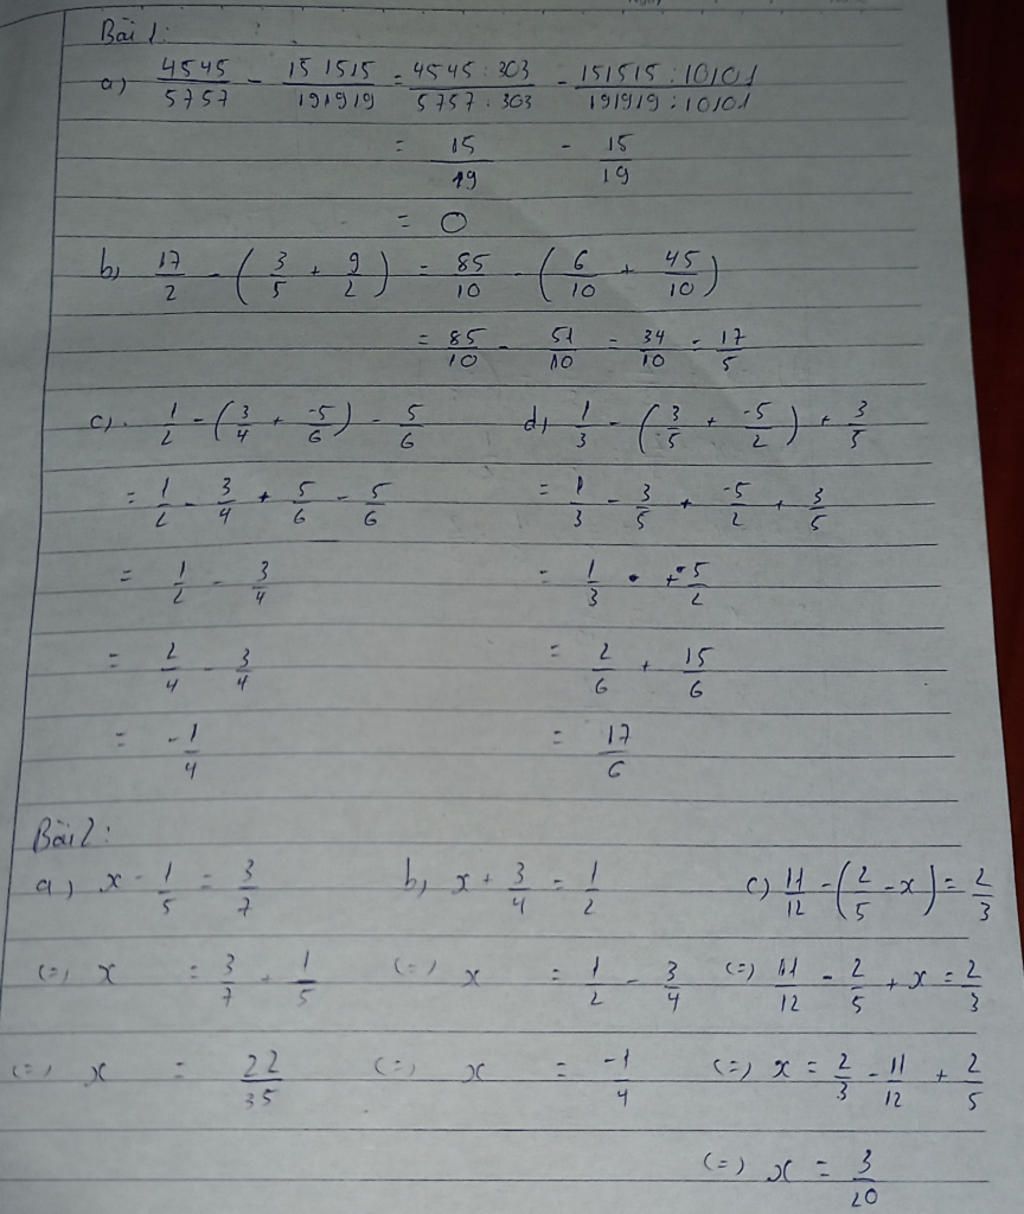 Bài 1:
a) 4545/5757 - 151515/191919 = 4545:303/5757:303 - 151515:10101/191919:10101
= 15/19 - 15/19
= 0
b) 17/2 - (3/5 + 9/2) = 85/10 - (6/10 + 45/10)
= 85/10 - 51/10 = 34/10 = 17/5
c) 1/2 - (3/4 + -5/6) - 5/6
= 1/2 - 3/4 + 5/6 - 5/6
= 1/2 - 3/4
= 2/4 - 3/4
= -1/4
d) 1/3 - (3/5 + -5/2) + 3/5
= 1/3 - 3/5 + -5/2 + 3/5
= 1/3 + -5/2
= 2/6 + 15/6
= 17/6
Bài 2:
a) x - 1/5 = 3/7
(=) x = 3/7 + 1/5
(=) x = 22/35
b) x + 3/4 = 1/2
(=) x = 1/2 - 3/4
(=) x = -1/4
c) 11/12 - (2/5 - x) = 2/3
(=) 11/12 - 2/5 + x = 2/3
(=) x = 2/3 - 11/12 + 2/5
(=) x = 3/20